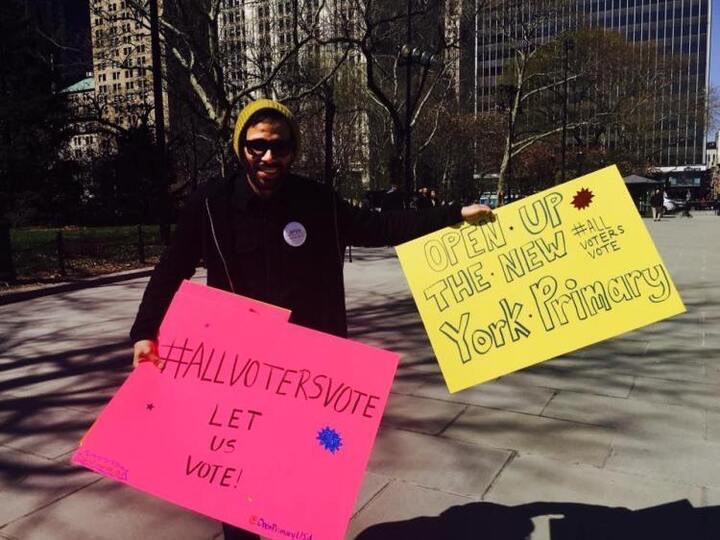 #ALLVOTERSVOTE
LET
US
VOTE!
@OpenPrimaryUSA
OPEN·UP
THE·NEW
York·Primary
#ALL
VOTERS
VOTE